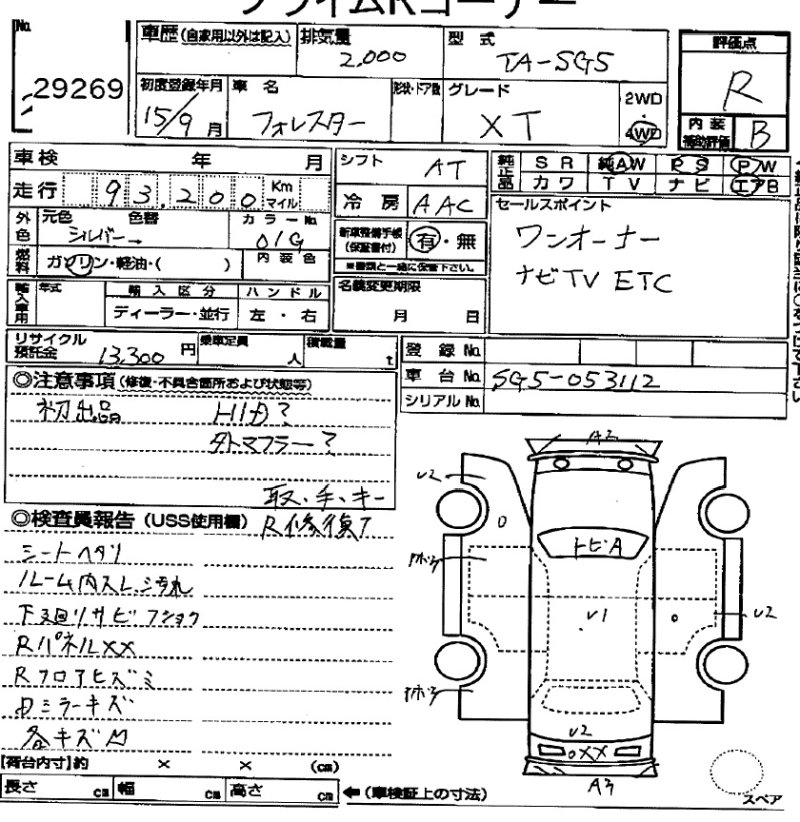 プライムRコーナー
No. 29269
車歴 (自家用以外は記入) 排気量 2,000 型式 TA-SG5 評価点 R
初度登録年月 15/9月 車名 フォレスター 形状・ドア数 グレード XT 2WD・4WD 内装補助評価 B
車検 年 月 シフト AT 純正品 SR 純AW PS PW
走行 93,200 Km マイル 冷房 AAC カワ TV ナビ エアB
外色 元色 シルバー 色替 カラーNo. 01G 新車整備手帳(保証書付) 有・無 セールスポイント
※書類と一緒に保管下さい。 ワンオーナー
燃料 ガソリン・軽油・( ) 内装色 ナビTV ETC
輸入車用 年式 輸入区分 ハンドル 名義変更期限
ディーラー・並行 左・右 月 日
リサイクル預託金 13,300円 乗車定員 人 積載量 t 登録No.
車台No. SG5-053112
シリアルNo.
◎注意事項 (修復・不具合箇所および状態等)
初出品 HID?
タトマフラー?
取、手、キー
◎検査員報告 (USS使用欄) R修復了
シートヘタリ
ルーム内スレ、汚れ
下廻りサビ
RパネルXX
Rフロアヒズミ
ミラーキズ
各キズ凹
A2
U2
トビA
U1
U2
U2
XX
A3
スペア
【荷台内寸】約 × × (cm)
長さ cm 幅 cm 高さ cm ←(車検証上の寸法)